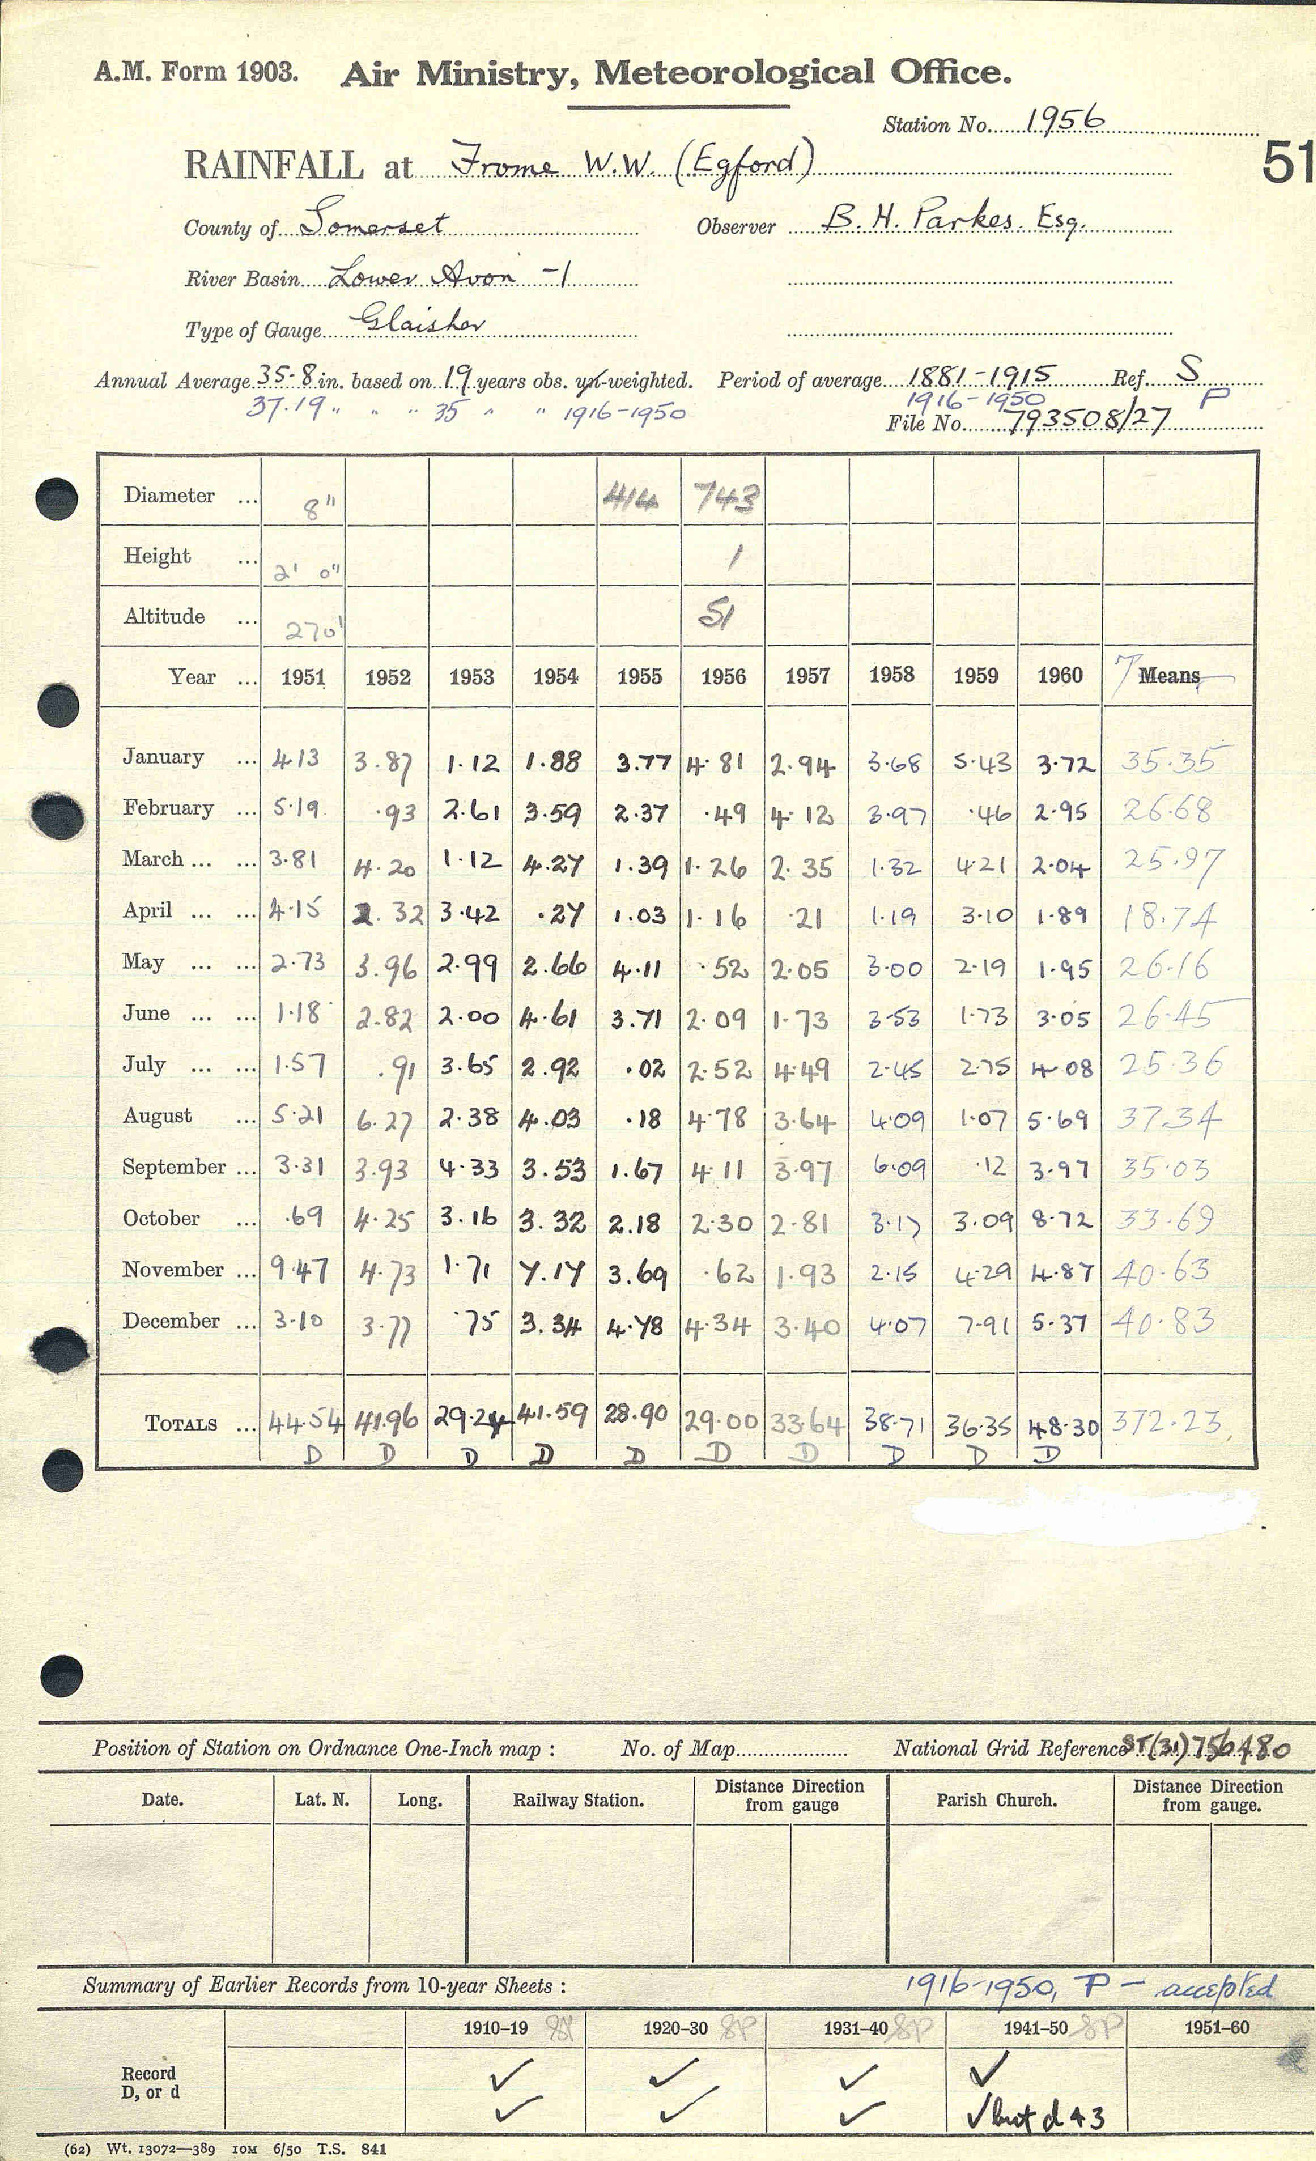 A.M. Form 1903. Air Ministry, Meteorological Office.
Station No. 1956
51
RAINFALL at Frome W.W. (Egford)
County of Somerset Observer B. H. Parkes. Esq.
River Basin Lower Avon -1
Type of Gauge Glaisher
Annual Average 35.8 in. based on 19 years obs. un-weighted. Period of average 1881-1915 Ref. S
37.19 " " " 35 " " 1916-1950 1916-1950 P
File No. 793508/27
Diameter ... 8" 414 743
Height ... 2' 0" 1
Altitude ... 270' 51
Year ... 1951 1952 1953 1954 1955 1956 1957 1958 1959 1960 T Means
January ... 4.13 3.87 1.12 1.88 3.77 4.81 2.94 3.68 5.43 3.72 35.35
February ... 5.19 .93 2.61 3.59 2.37 .49 4.12 3.97 .46 2.95 26.68
March ... ... 3.81 4.20 1.12 4.27 1.39 1.26 2.35 1.32 4.21 2.04 25.97
April ... ... 4.15 2.32 3.42 .27 1.03 1.16 .21 1.19 3.10 1.89 18.74
May ... ... 2.73 3.96 2.99 2.66 4.11 .52 2.05 3.00 2.19 1.95 26.16
June ... ... 1.18 2.82 2.00 4.61 3.71 2.09 1.73 3.53 1.73 3.05 26.45
July ... ... 1.57 .91 3.65 2.92 .02 2.52 4.49 2.45 2.75 4.08 25.36
August ... 5.21 6.27 2.38 4.03 .18 4.78 3.64 4.09 1.07 5.69 37.34
September ... 3.31 3.93 4.33 3.53 1.67 4.11 3.97 6.09 .12 3.97 35.03
October ... .69 4.25 3.16 3.32 2.18 2.30 2.81 3.17 3.09 8.72 33.69
November ... 9.47 4.73 1.71 7.17 3.69 .62 1.93 2.15 4.29 4.87 40.63
December ... 3.10 3.77 .75 3.34 4.78 4.34 3.40 4.07 7.91 5.37 40.83
TOTALS ... 44.54 41.96 29.24 41.59 28.90 29.00 33.64 38.71 36.35 48.30 372.23
D D D D D D D D D D
Position of Station on Ordnance One-Inch map : No. of Map National Grid Reference ST(31)756480
Date. Lat. N. Long. Railway Station. Distance Direction from gauge Parish Church. Distance Direction from gauge.
Summary of Earlier Records from 10-year Sheets : 1916-1950, P - accepted
1910-19 1920-30 SP 1931-40 SP 1941-50 SP 1951-60
Record ✓ ✓ ✓ ✓
D, or d ✓ ✓ ✓ ✓ but d 43
(62) Wt. 13072—389 10M 6/50 T.S. 841